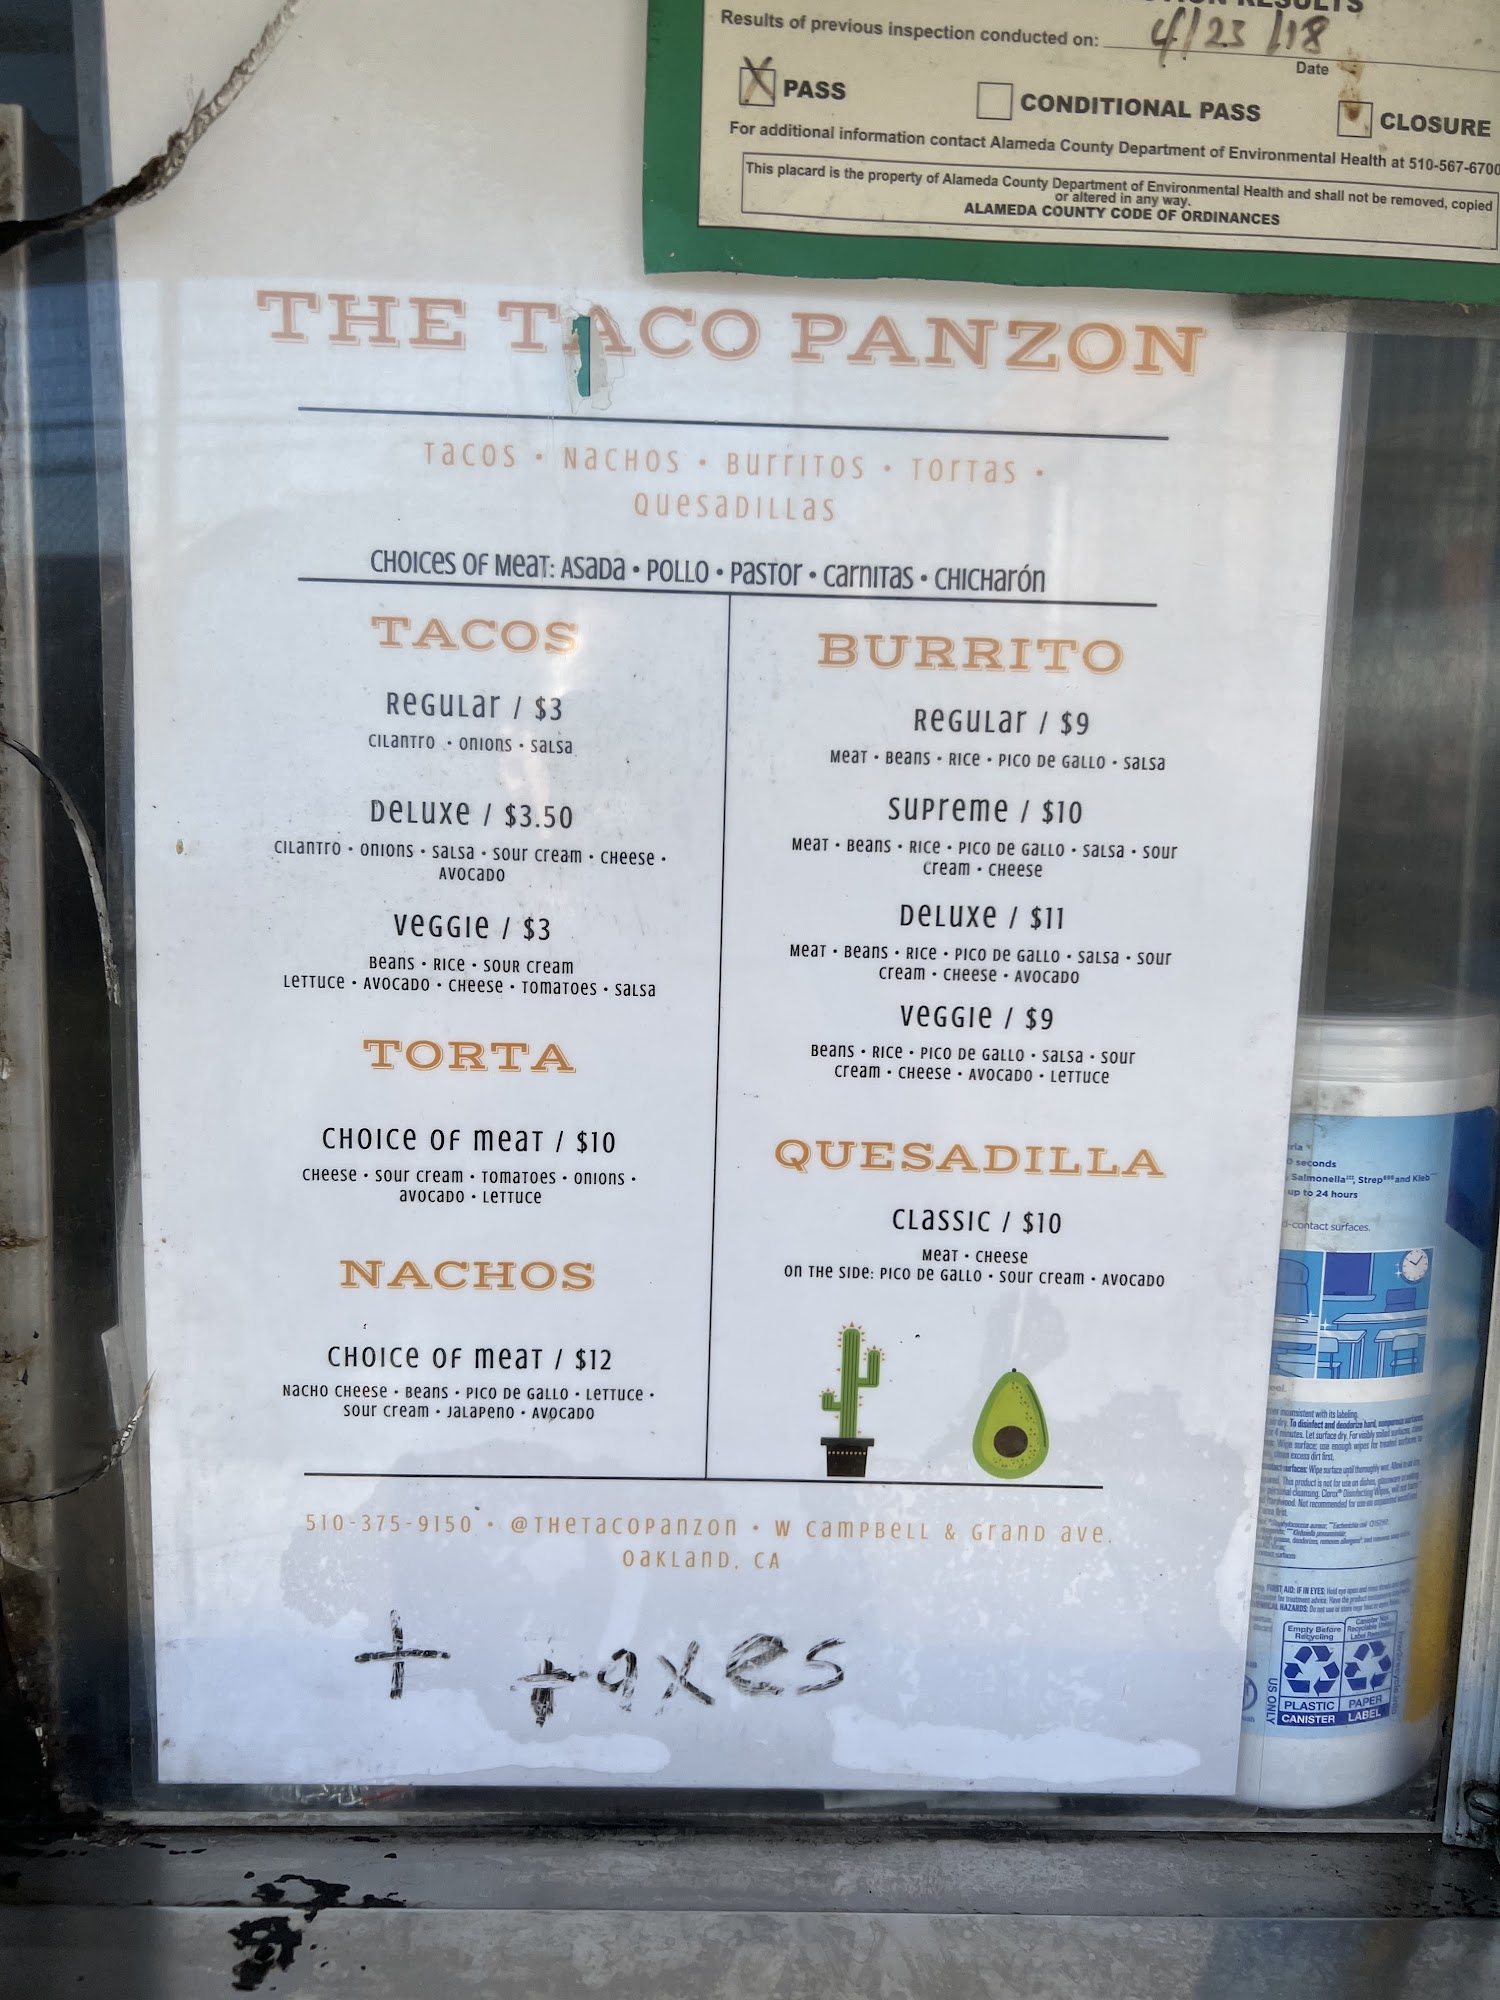 RESULTS
Results of previous inspection conducted on: 4/23/18
Date
PASS
CONDITIONAL PASS
CLOSURE
For additional information contact Alameda County Department of Environmental Health at 510-567-6700
This placard is the property of Alameda County Department of Environmental Health and shall not be removed, copied
or altered in any way.
ALAMEDA COUNTY CODE OF ORDINANCES
THE TACO PANZON
TACOS • NACHOS • BURRITOS • TORTAS •
QUESADILLAS
CHOICES OF MEAT: ASADA • POLLO • PASTOR • CARNITAS • CHICHARÓN
TACOS
REGULAR / $3
CILANTRO • ONIONS • SALSA
DELUXE / $3.50
CILANTRO • ONIONS • SALSA • SOUR CREAM • CHEESE •
AVOCADO
VEGGIE / $3
BEANS • RICE • SOUR CREAM
LETTUCE • AVOCADO • CHEESE • TOMATOES • SALSA
TORTA
CHOICE OF MEAT / $10
CHEESE • SOUR CREAM • TOMATOES • ONIONS •
AVOCADO • LETTUCE
NACHOS
CHOICE OF MEAT / $12
NACHO CHEESE • BEANS • PICO DE GALLO • LETTUCE •
SOUR CREAM • JALAPENO • AVOCADO
BURRITO
REGULAR / $9
MEAT • BEANS • RICE • PICO DE GALLO • SALSA
SUPREME / $10
MEAT • BEANS • RICE • PICO DE GALLO • SALSA • SOUR
CREAM • CHEESE
DELUXE / $11
MEAT • BEANS • RICE • PICO DE GALLO • SALSA • SOUR
CREAM • CHEESE • AVOCADO
VEGGIE / $9
BEANS • RICE • PICO DE GALLO • SALSA • SOUR
CREAM • CHEESE • AVOCADO • LETTUCE
QUESADILLA
CLASSIC / $10
MEAT • CHEESE
ON THE SIDE: PICO DE GALLO • SOUR CREAM • AVOCADO
510-375-9150 • @THETACOPANZON • W CAMPBELL & GRAND AVE.
OAKLAND, CA
+ taxes
seconds
Salmonella, Strep and Kleb
up to 24 hours
-contact surfaces.
inconsistent with its labeling.
To disinfect and deodorize hard, nonporous surfaces
minutes. Let surface dry. For visibly soiled surfaces, clean
excess dirt first.
FIRST AID: IF IN EYES: Hold eye open and
Empty Before
Recycling
PLASTIC
CANISTER
PAPER
LABEL
US ONLY